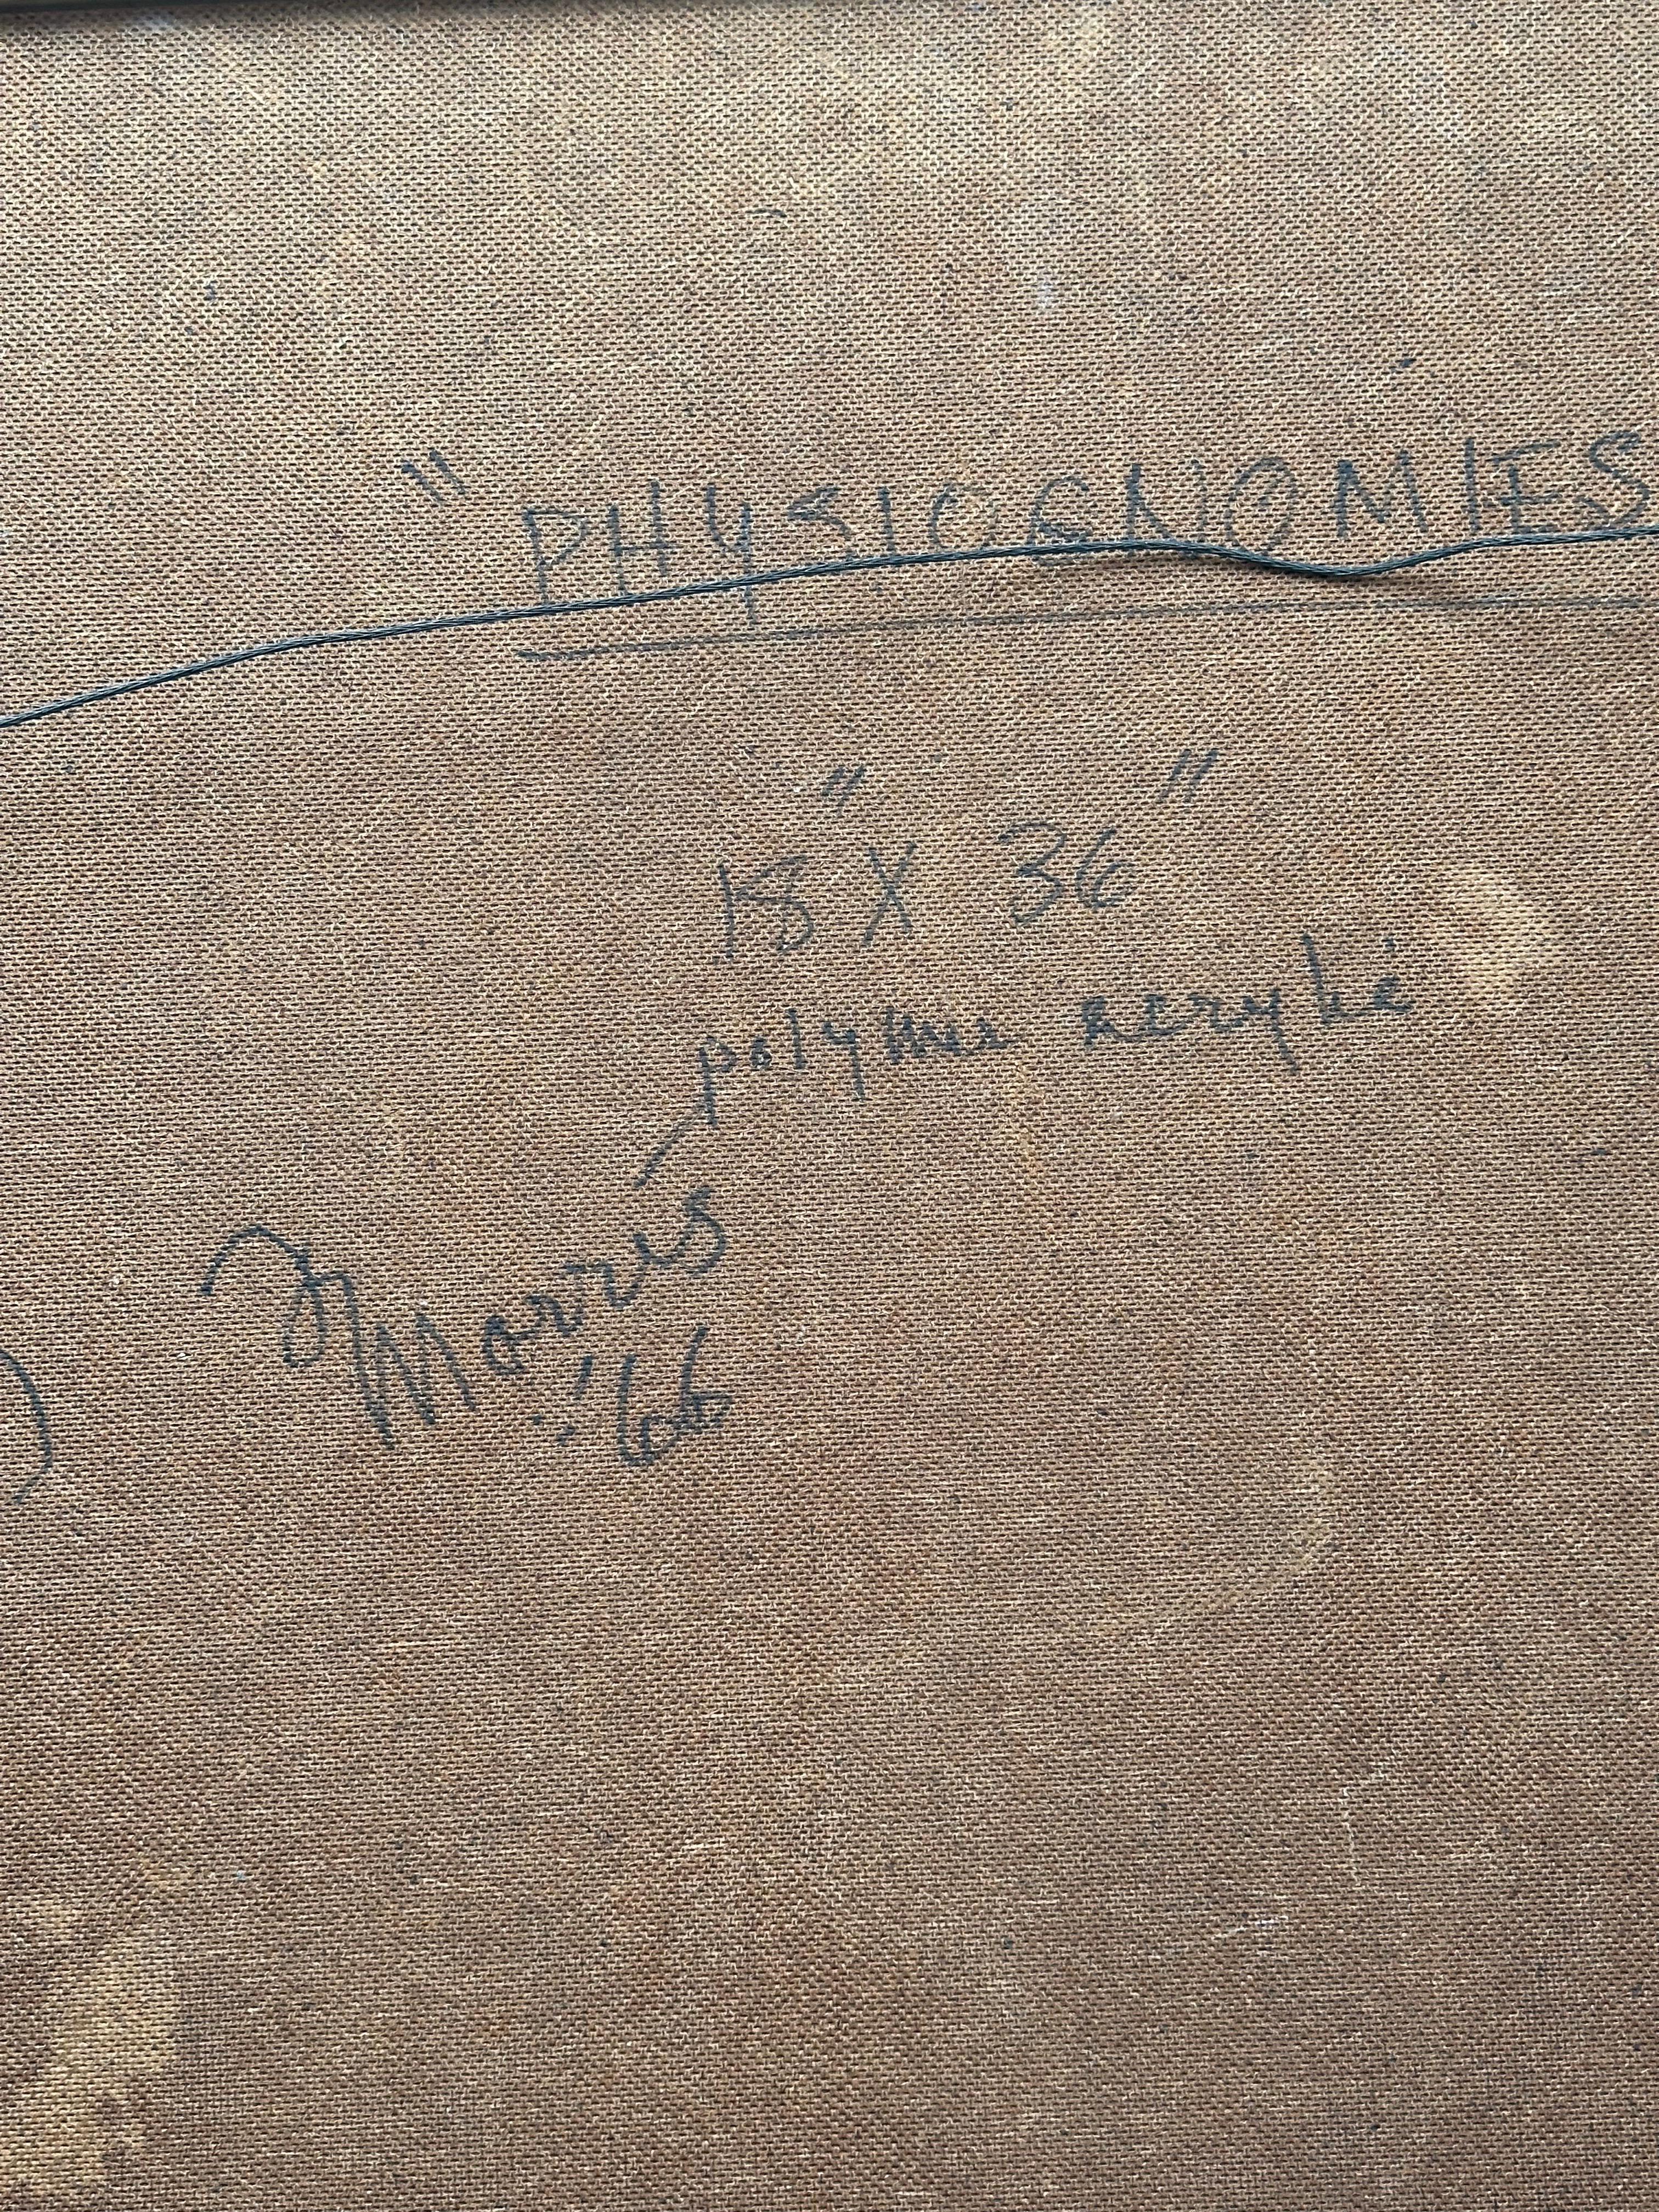 "PHYSIOGNOMIES
18" X 36"
polymer acrylic
Morris
'66